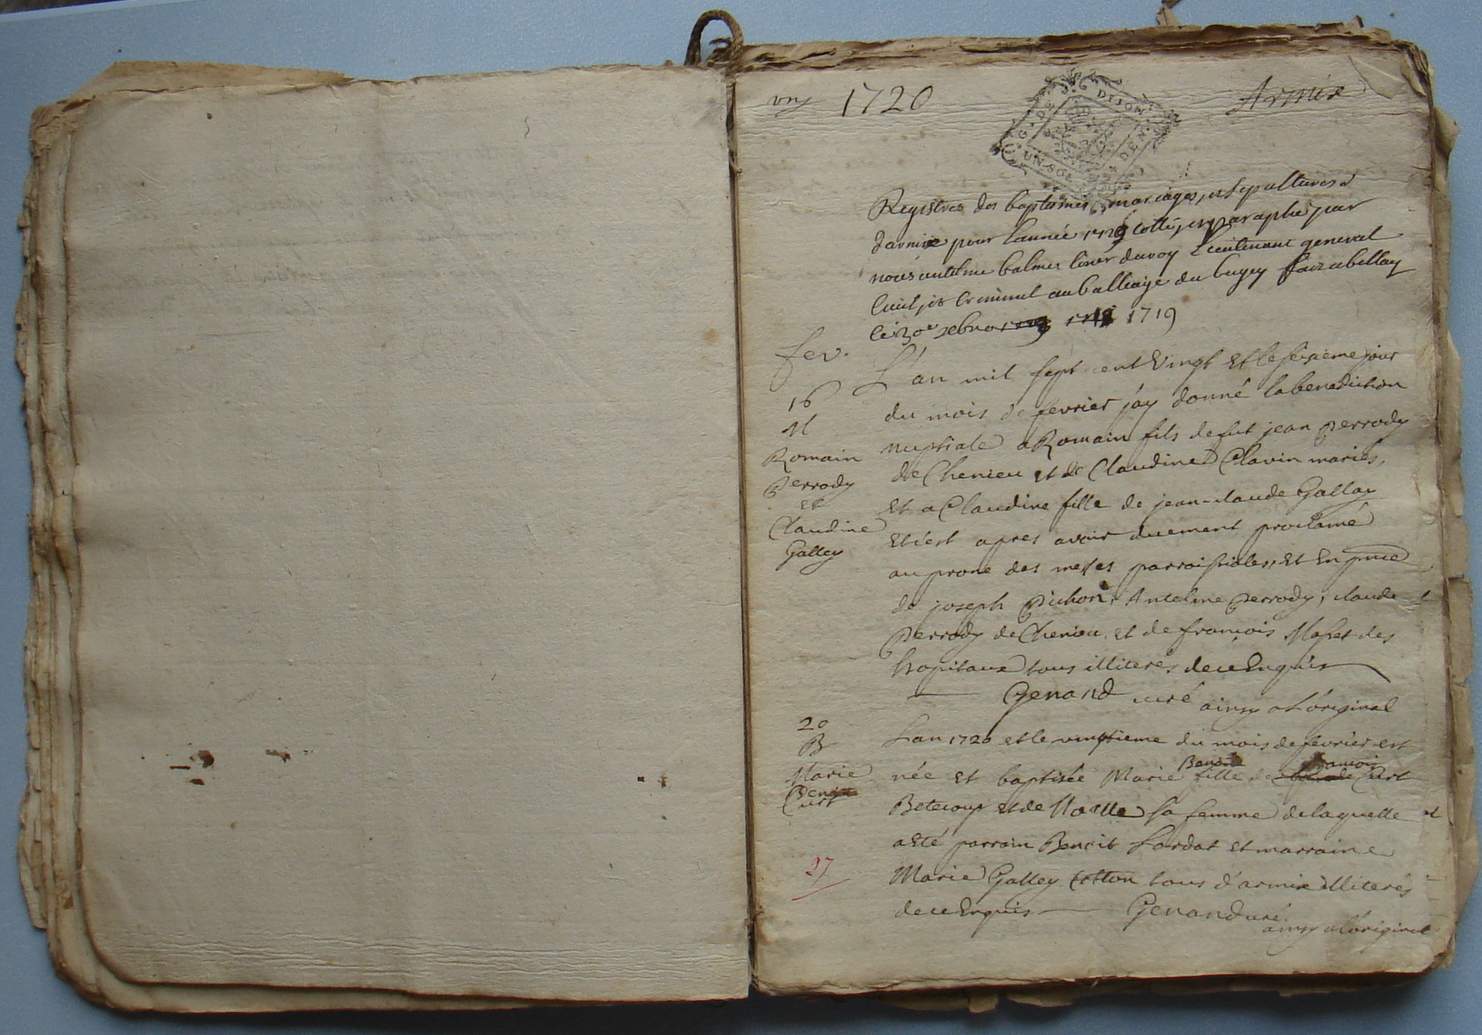 1720
Armix
G. DE DIJON
UN SOL DEN
Registres des baptemes mariages, et sepultures
d'armix pour l'année cotté, et paraphé par
nous antelme balme du roy Lieutenant general
Civil, et Criminel au balliage du bugey a bellay
le 30e xbre 1719
fev.
16
M
Romain
Perrody
Et
Claudine
Galley
L'an mil sept cent Vingt et le seisieme jour
du mois de fevrier j'ay donné la benediction
nuptiale a Romain fils de fut jean perrody
de Chenieu et de Claudine Clavin mariés,
et a Claudine fille de jean-claude Gallay
et c'est apres avoir duement proclamé
au prone des messes parroissiales, et En pnce
de joseph pichon, Antelme perrody, claude
perrody de Cheniou, et de francois Masset des
hopitaux tous illiterés de ce Enquis
Genand curé ainsy a l'original
20
B
Marie
Benoite
Curt
L'an 1720 et le vingtieme du mois de fevrier est
née et baptisée Marie Benoite fille de francois Curt
Betecoup et de Noelle sa femme de laquelle
a eté parrain Benoit Lardat et marraine
Marie Galley tous d'armix illiterés
de ce Enquis Genand curé
ainsy a l'original
27